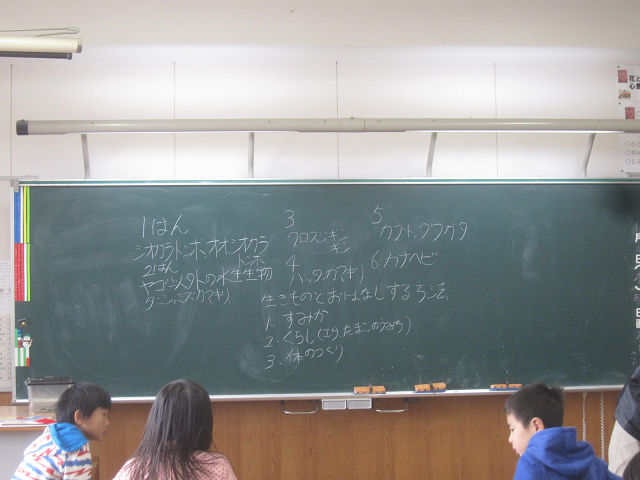 1はん
シオカラトンボ、オオシオカラ
トンボ
2はん
ヤゴ以外の水生生物
ダニ、ハス、カマキリ
3
クロスジギン
ギン
4
バッタ、カマキリ
5
カブト、クワガタ
6 カナヘビ
生きものとおはなしする方法
1. すみか
2. くらし(エサ、たまごのうみかた)
3. 体のつくり
花と
心